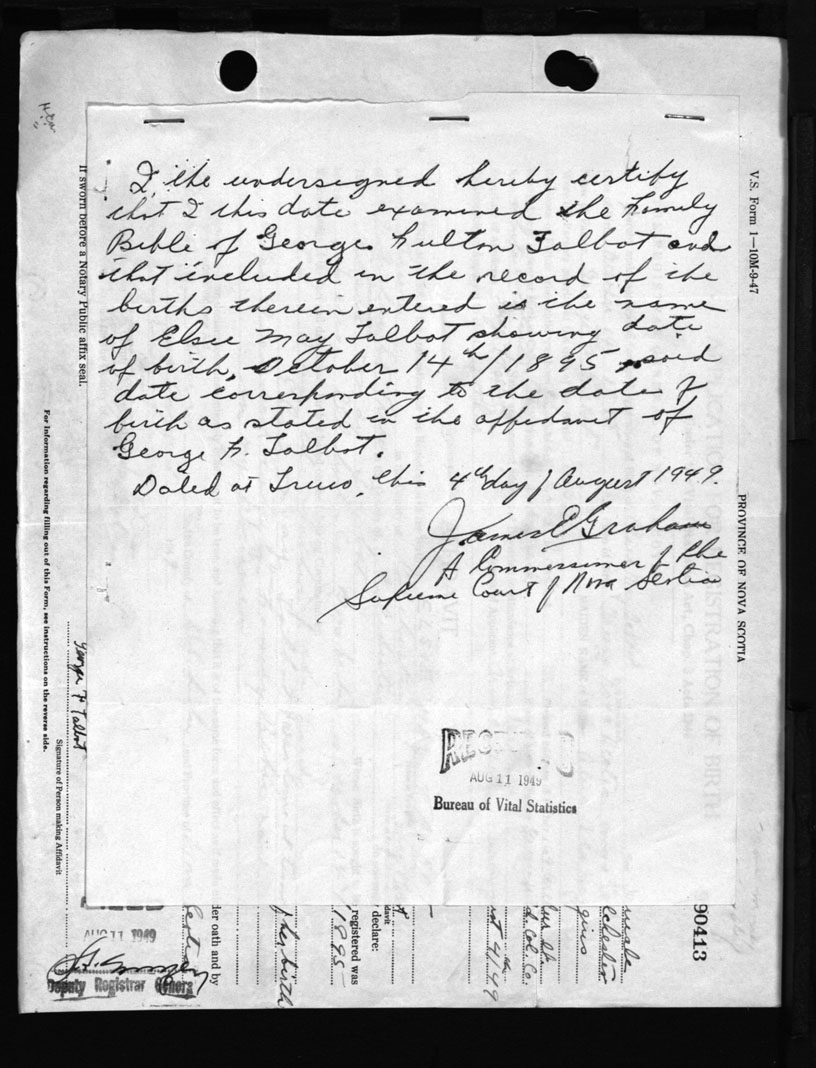 I, the undersigned hereby certify
that I this date examined the Family
Bible of George Fulton Talbot and
that included in the record of the
births therein entered is the name
of Elsie May Talbot showing date
of birth, October 14th/1895 said
date corresponding to the date of
birth as stated in the affidavit of
George F. Talbot.
Dated at Truro, this 4th day of August 1949.
James E Graham
A Commissioner of the
Supreme Court of Nova Scotia
AUG 11 1949
Bureau of Vital Statistics
V.S. Form 1—10M-9-47
PROVINCE OF NOVA SCOTIA
90413
If sworn before a Notary Public affix seal.
For information regarding filling out of this Form, see instructions on the reverse side.
George F Talbot
Signature of Person making Affidavit
AUG 11 1949
Deputy Registrar General
der oath and by
her birth
registered was
1895
declare:
davit
Col. Co.